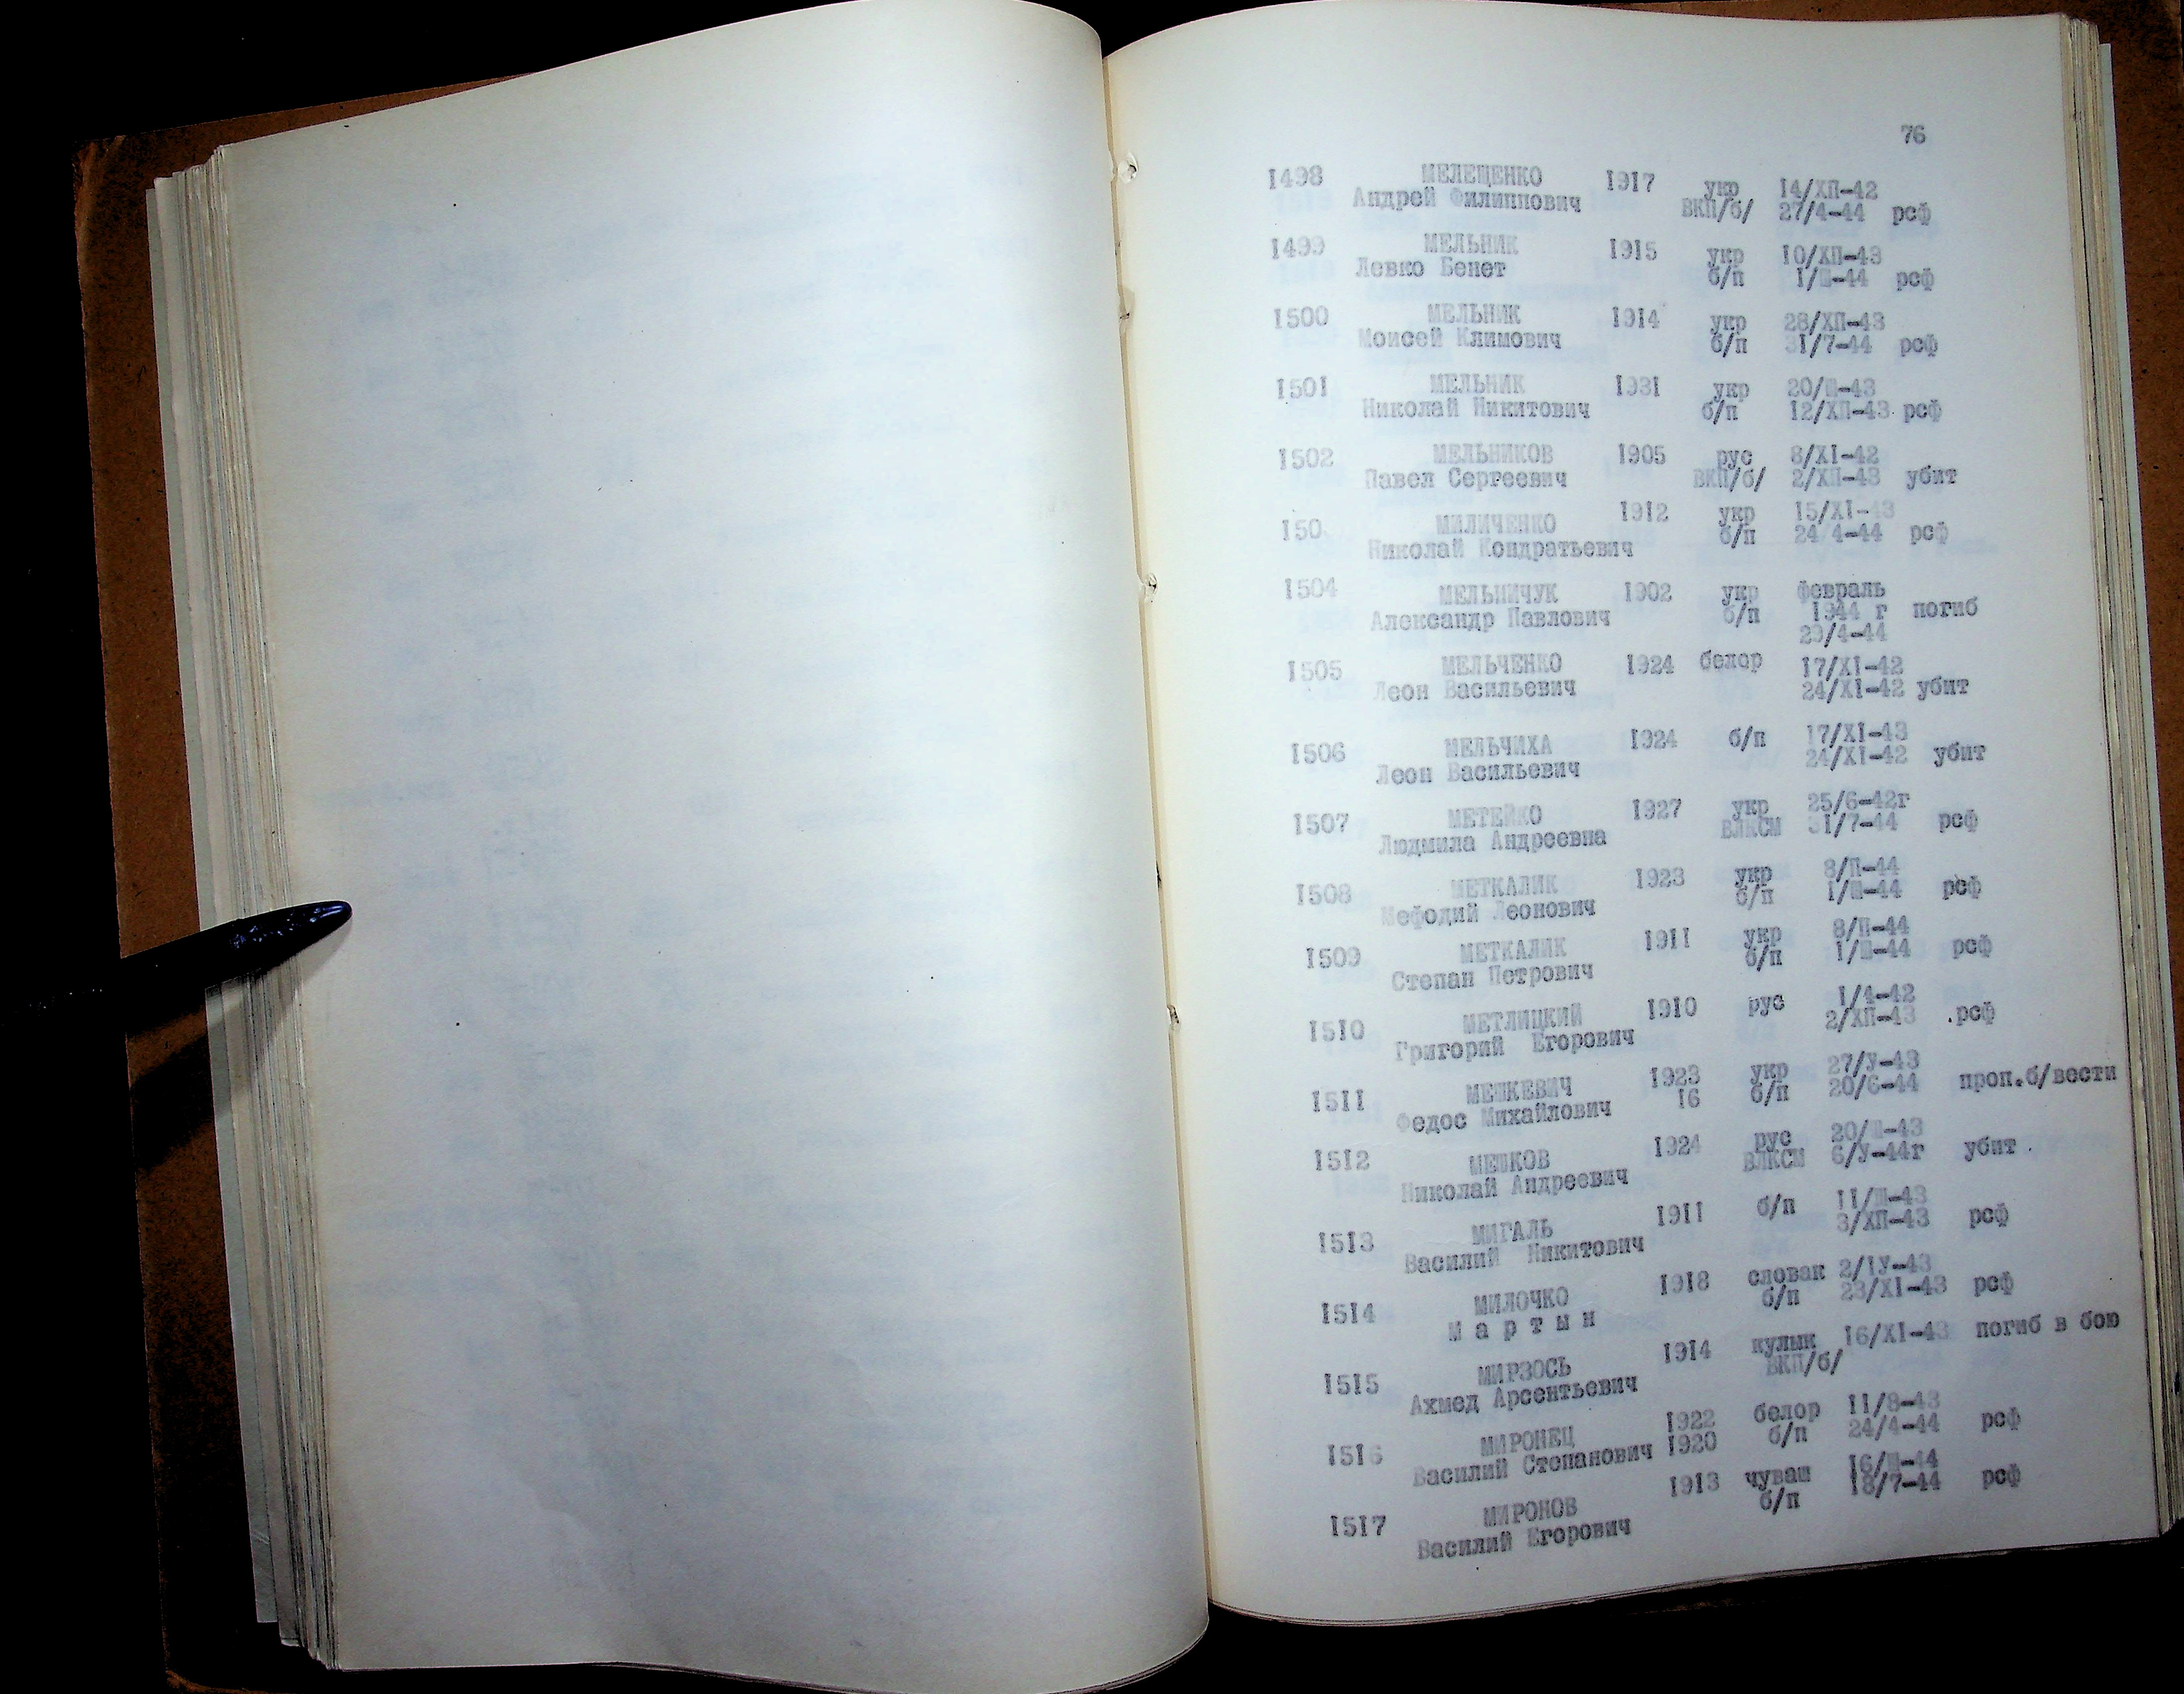 76
1498 МЕЛЕЩЕНКО 1917 укр 14/ХП-42
Андрей Филиппович ВКП/б/ 27/4-44 рсф
1499 МЕЛЬНИК 1915 укр 10/ХП-43
Левко Бенет б/п 1/Ш-44 рсф
1500 МЕЛЬНИК 1914 укр 28/ХП-43
Моисей Климович б/п 31/7-44 рсф
1501 МЕЛЬНИК 1931 укр 20/Ш-43
Николай Никитович б/п 12/ХП-43 рсф
1502 МЕЛЬНИКОВ 1905 рус 8/XI-42
Павел Сергеевич ВКП/б/ 2/ХП-43 убит
150 МИЛИЧЕНКО 1912 укр 15/XI-43
Николай Кондратьевич б/п 24 4-44 рсф
1504 МЕЛЬНИЧУК 1902 укр февраль
Александр Павлович б/п 1944 г погиб
29/4-44
1505 МЕЛЬЧЕНКО 1924 белор 17/XI-42
Леон Васильевич 24/XI-42 убит
1506 МЕЛЬЧИХА 1924 б/п 17/XI-43
Леон Васильевич 24/XI-42 убит
1507 МЕТЕЙКО 1927 укр 25/6-42г
Людмила Андреевна ВЛКСМ 31/7-44 рсф
1508 МЕТКАЛИК 1923 укр 8/П-44
Мефодий Леонович б/п 1/Ш-44 рсф
1509 МЕТКАЛИК 1911 укр 8/П-44
Степан Петрович б/п 1/Ш-44 рсф
1510 МЕТЛИЦКИЙ 1910 рус 1/4-42
Григорий Егорович 2/ХП-43 .рсф
1511 МЕШКЕВИЧ 1923 укр 27/У-43
Федос Михайлович 16 б/п 20/6-44 проп.б/вести
1512 МЕШКОВ 1924 рус 20/Ш-43
Николай Андреевич ВЛКСМ 6/У-44г убит
1513 МИГАЛЬ 1911 б/п 11/Ш-43
Василий Никитович 3/ХП-43 рсф
1514 МИЛОЧКО 1918 словак 2/IУ-43
М а р т ы н б/п 23/XI-43 рсф
1515 МИРЗОСЬ 1914 кулык 16/XI-43 погиб в бою
Ахмед Арсентьевич ВКП/б/
1516 МИРОНЕЦ 1922 белор 11/8-43
Василий Степанович 1920 б/п 24/4-44 рсф
1517 МИРОНОВ 1913 чуваш 16/Ш-44
Василий Егорович б/п 18/7-44 рсф